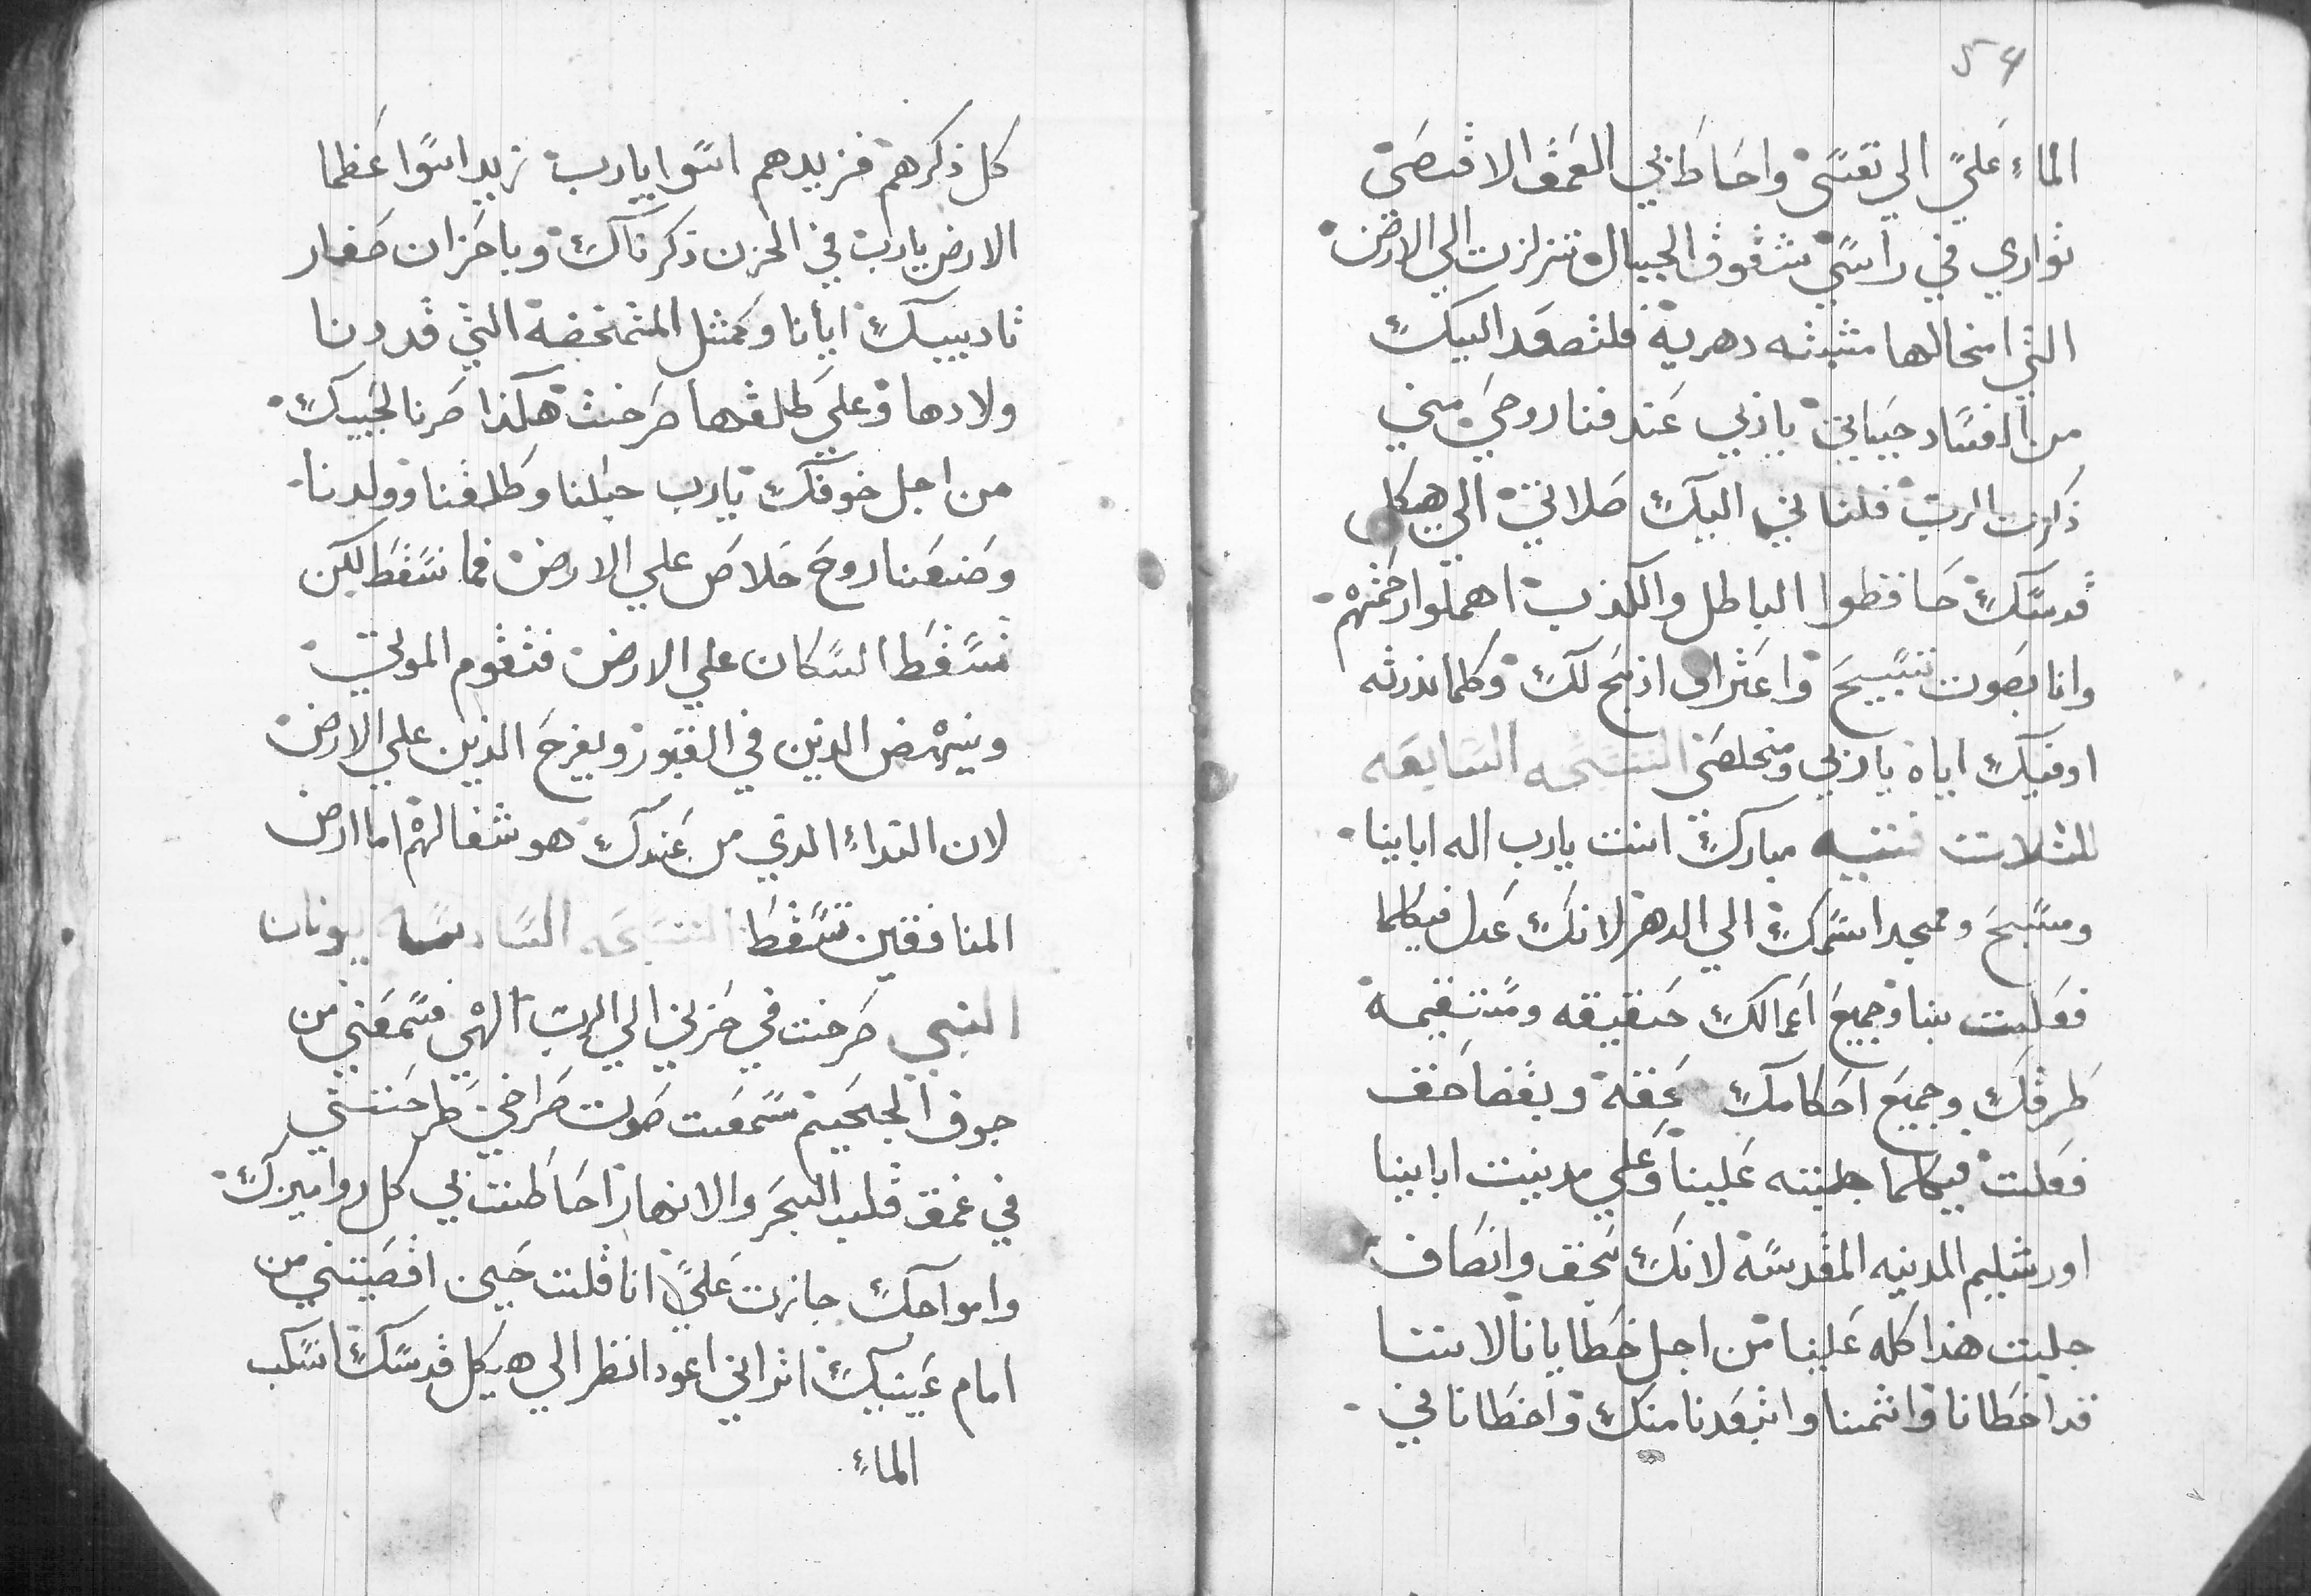 كل ذكرهم فزيدهم اسوا يارب زيد اسوا عظما
الارض يارب في الحزن ذكرناك وباحزان صغار
تادييبك ايانا وكمثل المتمخضة التي قد دنا
ولادها وعلي طلقها صرخت هكذا صرنا لحبيبك
من اجل خوفك يارب حبلنا وطلقنا وولدنا
وصنعنا روح خلاص علي الارض فما نسقط لكن
تسقط السكان علي الارض فتقوم الموتي
وينهض الدين في القبور ويفرح الدين علي الارض
لان النداء الدي من عندك هو شفا لهم اما ارض
المنافقين تسقط التسبحه السادسه يونان
النبي صرخت في حزني الي الرب الهي فسمعني من
جوف الجحيم سمعت صوت صراخي طرحتني
في عمق قلب البحر والانهار احاطت بي كل دواميرك
وامواجك جازت علي انا قلت حين اقصيتني من
امام عينيك اتراني اعود انظر الي هيكل قدسك انسكب
الماء
54
الماء علي الي نفسي واحاط بي العمق الاقصي
تواري في راسي شقوق الجبال تنزلت الي الارض
التي امخالها متبته دهرية فلتصعد اليك
من الفساد حياتي ياربي عند فنا روحي مني
ذكرت الرب فلتاتي اليك صلاتي الي هيكل
قدسك حافظوا الباطل والكذب اهملوا رحمتهم
وانا بصوت تسبيح واعتراف اذبح لك وكلما نذرته
اوفيك اياه ياربي ومخلصي التسبحه السابعه
للثلاتت فتيه مبارك انت يارب اله ابابنا
ومسبح وممجد اسمك الي الدهر لانك عدل فيكلما
فعلت بنا وجميع اعمالك حقيقه ومستقيمة
طرقك وجميع احكامك بحقة وبقضا حق
فعلت فيكلما جلبته علينا وعلي مدينت ابابنا
اورشليم المدينه المقدسة لانك بحق وانصاف
جلبت هذا كله علينا من اجل خطايانا لاننا
قد اخطانا واثمنا وابتعدنا منك واخطانا في